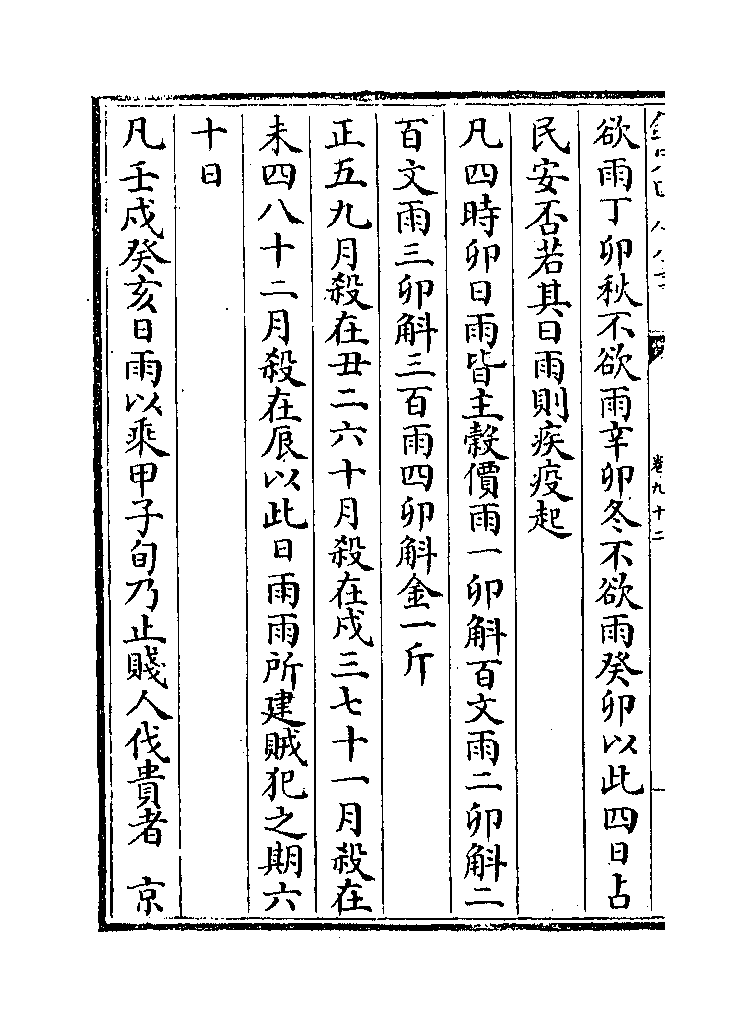 欲雨丁卯秋不欲雨辛卯冬不欲雨癸卯以此四日占
民安否若其日雨則疾疫起
凡四時卯日雨皆主穀價雨一卯斛百文雨二卯斛二
百文雨三卯斛三百雨四卯斛金一斤
正五九月殺在丑二六十月殺在戌三七十一月殺在
未四八十二月殺在辰以此日雨雨所建賊犯之期六
十日
凡壬戌癸亥日雨以乘甲子旬乃止賤人伐貴者 京
卷九十二